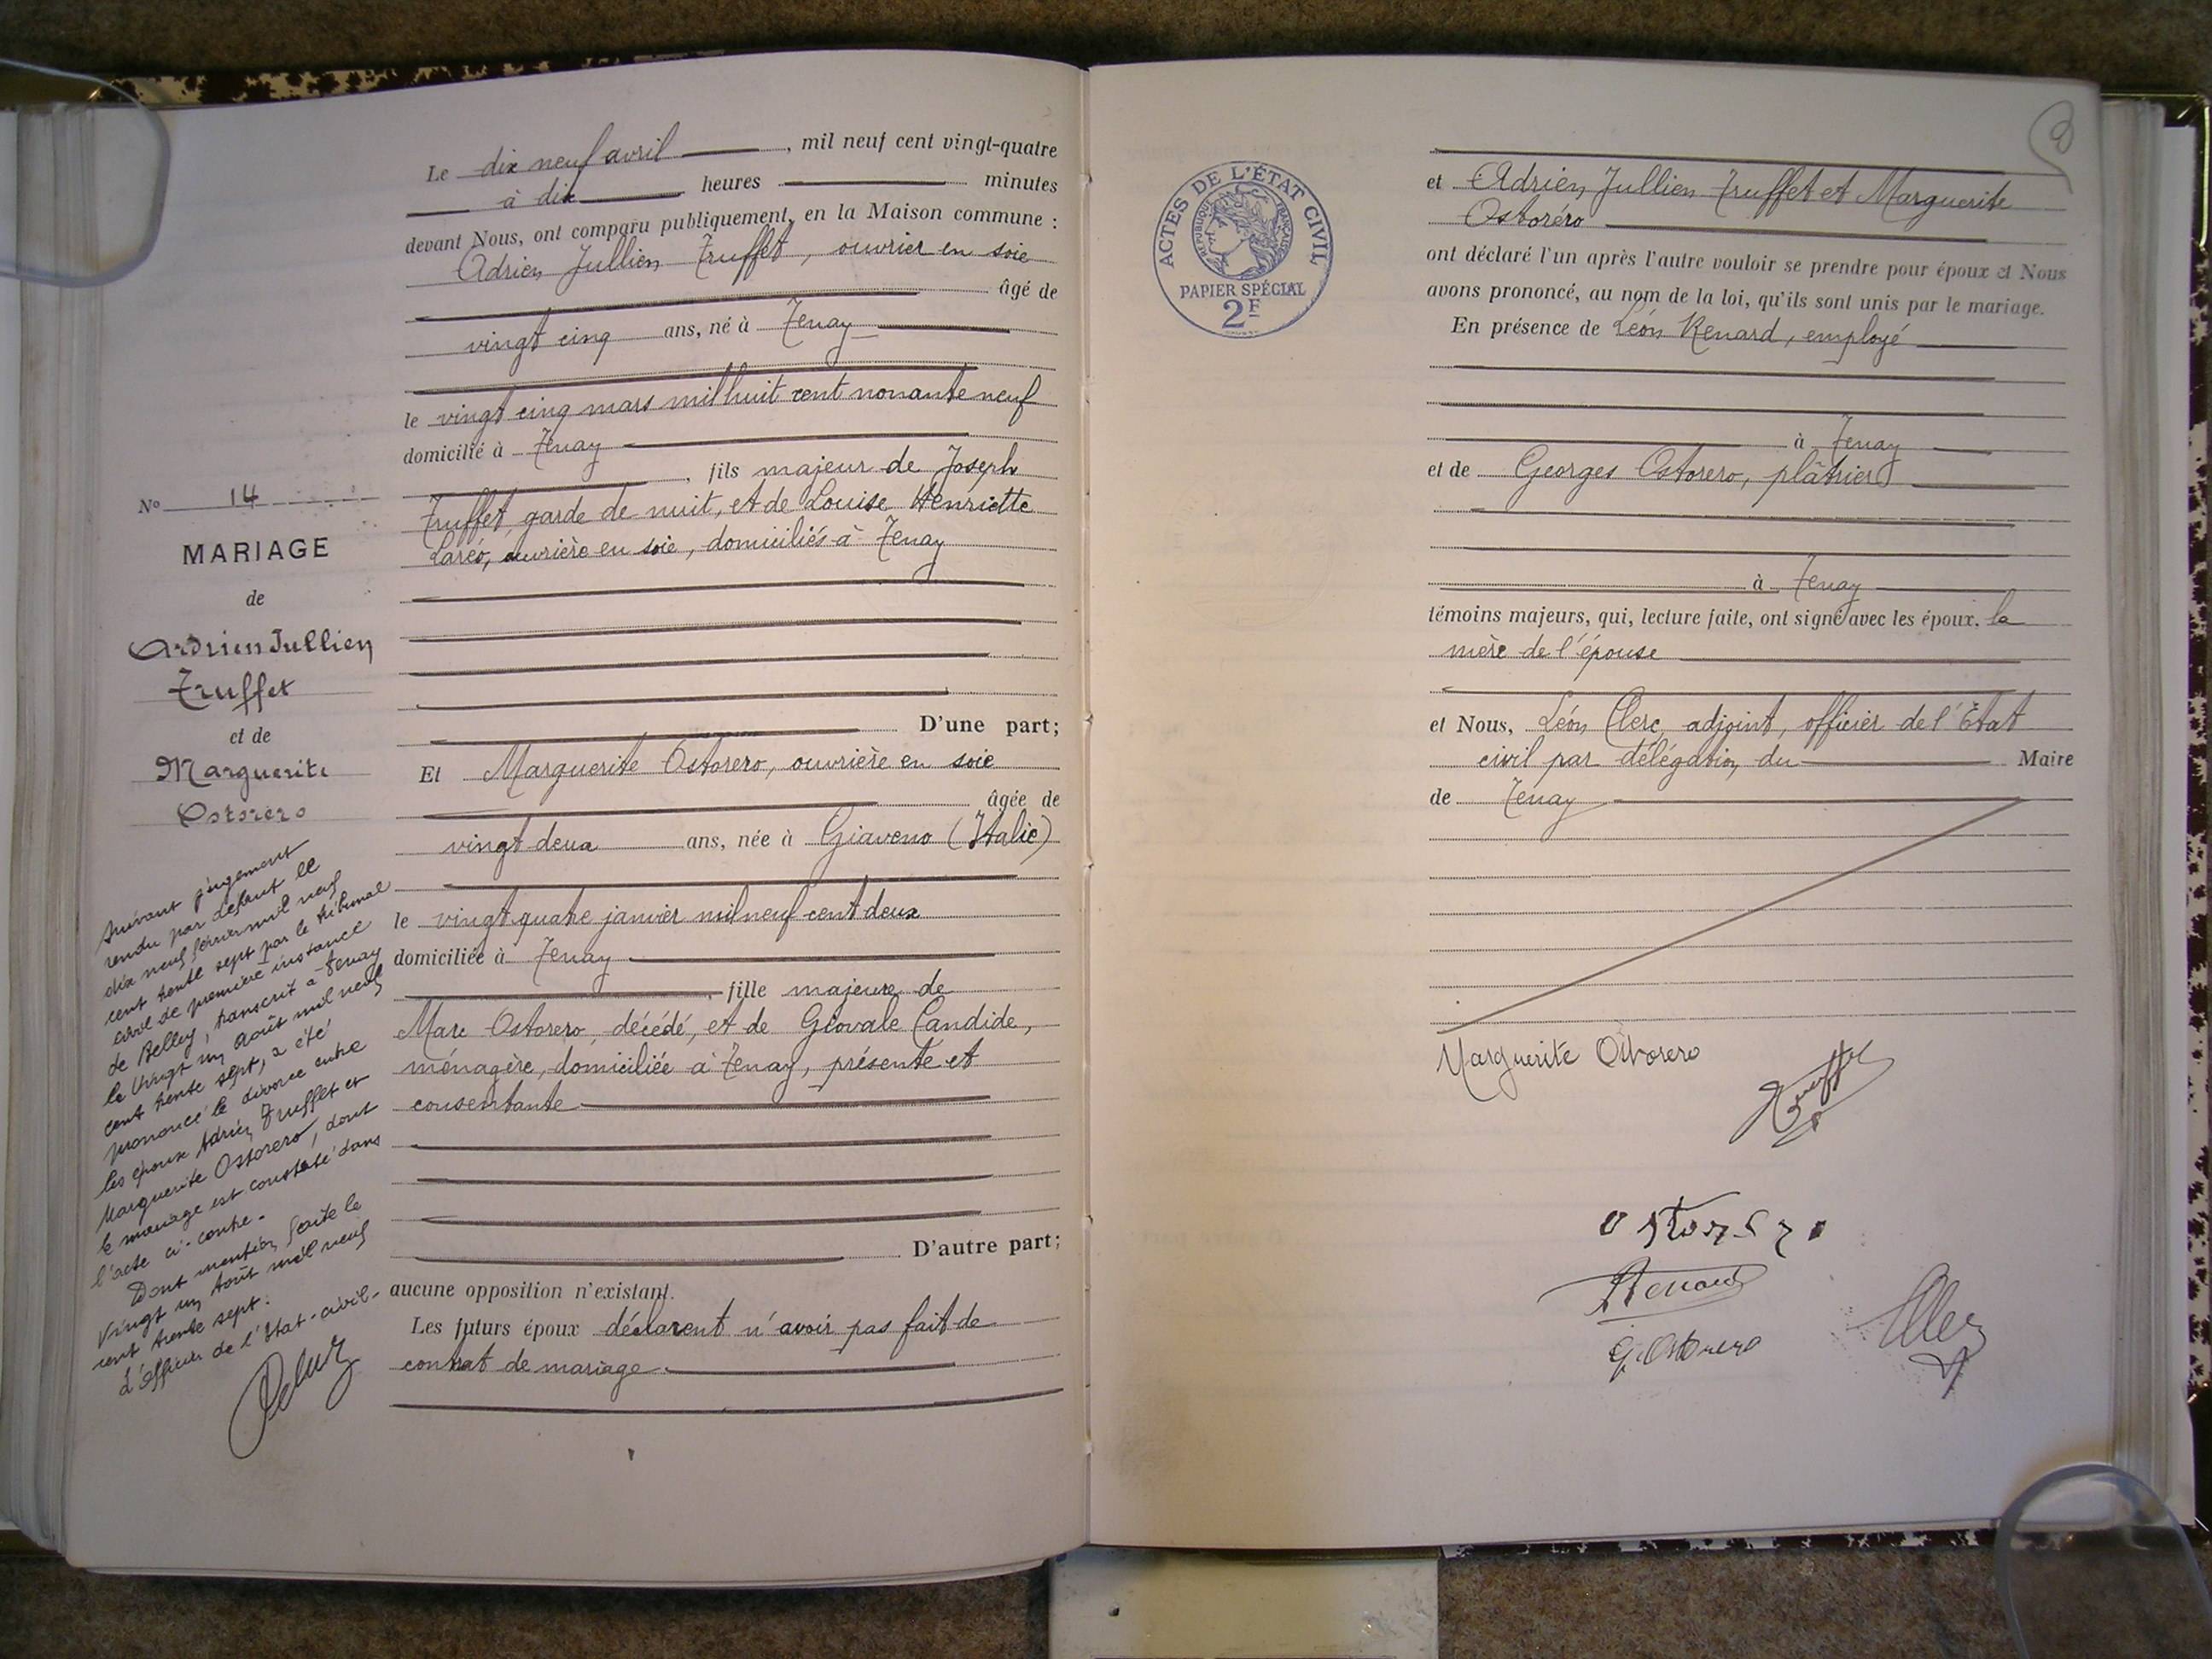 Le dix neuf avril, mil neuf cent vingt-quatre
à dix heures minutes
devant Nous, ont comparu publiquement, en la Maison commune :
Adrien Jullien Truffet, ouvrier en soie
âgé de
vingt cinq ans, né à Tenay
le vingt cinq mars mil huit cent nonante neuf
domicilié à Tenay
, fils majeur de Joseph
Truffet, garde de nuit, et de Louise Henriette
ouvrière en soie, domiciliés à Tenay
D'une part;
Et Marguerite Ostorero, ouvrière en soie
âgée de
vingt deux ans, née à Giaveno (Italie)
le vingt quatre janvier mil neuf cent deux
domiciliée à Tenay
, fille majeure de
Marc Ostorero, décédé, et de Giovale Candide,
ménagère, domiciliée à Tenay, présente et
consentante
D'autre part;
aucune opposition n'existant.
Les futurs époux déclarent n'avoir pas fait de
contrat de mariage.
No 14
MARIAGE
de
Adrien Jullien
Truffet
et de
Marguerite
Ostorero
Suivant jugement
rendu par défaut le
dix neuf février mil neuf
cent trente sept par le tribunal
civil de première instance
de Belley, transcrit à Tenay
le vingt un août mil neuf
cent trente sept, a été
prononcé le divorce entre
les époux Adrien Truffet et
Marguerite Ostorero, dont
le mariage est constaté dans
l'acte ci-contre.
Dont mention faite le
vingt un août mil neuf
cent trente sept.
L'officier de l'Etat-civil.
ACTES DE L'ÉTAT CIVIL
RÉPUBLIQUE FRANÇAISE
PAPIER SPÉCIAL
2F
et Adrien Jullien Truffet et Marguerite
Ostoréro
ont déclaré l'un après l'autre vouloir se prendre pour époux et Nous
avons prononcé, au nom de la loi, qu'ils sont unis par le mariage.
En présence de Léon Renard, employé
à Tenay
et de Georges Ostorero, plâtrier
à Tenay
témoins majeurs, qui, lecture faite, ont signé avec les époux, la
mère de l'épouse
et Nous, Léon Clerc, adjoint, officier de l'État
civil par délégation du Maire
de Tenay
Marguerite Ostorero
Truffet
Ostorero
Renard
G. Ostorero